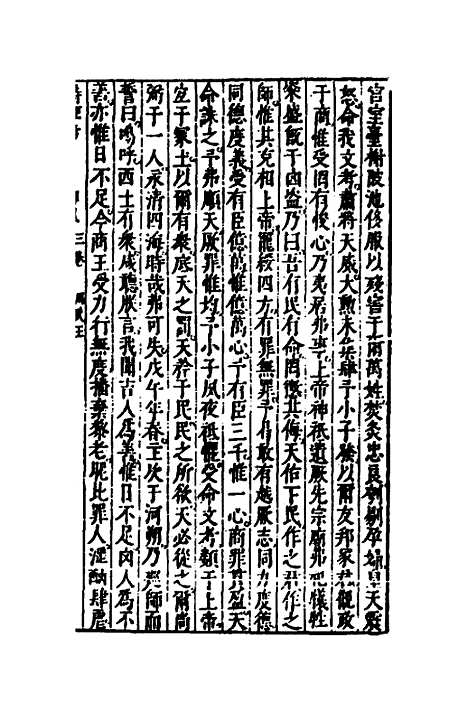 宮室臺榭陂池侈服以殘害于爾萬姓焚炙忠良刳剔孕婦皇天震
怒命我文考肅將天威大勲未集肆予小子發以爾友邦冢君觀政
于商惟受罔有悛心乃夷居弗事上帝神祇遺厥先宗廟弗祀犧牲
粢盛既于凶盜乃曰吾有民有命罔懲其侮天佑下民作之君作之
師惟其克相上帝寵綏四方有罪無罪予曷敢有越厥志同力度德
同德度義受有臣億萬惟億萬心予有臣三千惟一心商罪貫盈天
命誅之予弗順天厥罪惟均予小子夙夜祗懼受命文考類于上帝
宜于冢土以爾有衆底天之罰天矜于民民之所欲天必從之爾尚
弼予一人永清四海時哉弗可失戊午年春王次于河朔乃誓師而
誓曰嗚呼西土有衆咸聽朕言我聞吉人爲善惟日不足凶人爲不
善亦惟日不足今商王受力行無度播棄黎老昵比罪人淫酗肆虐
三卷 武王